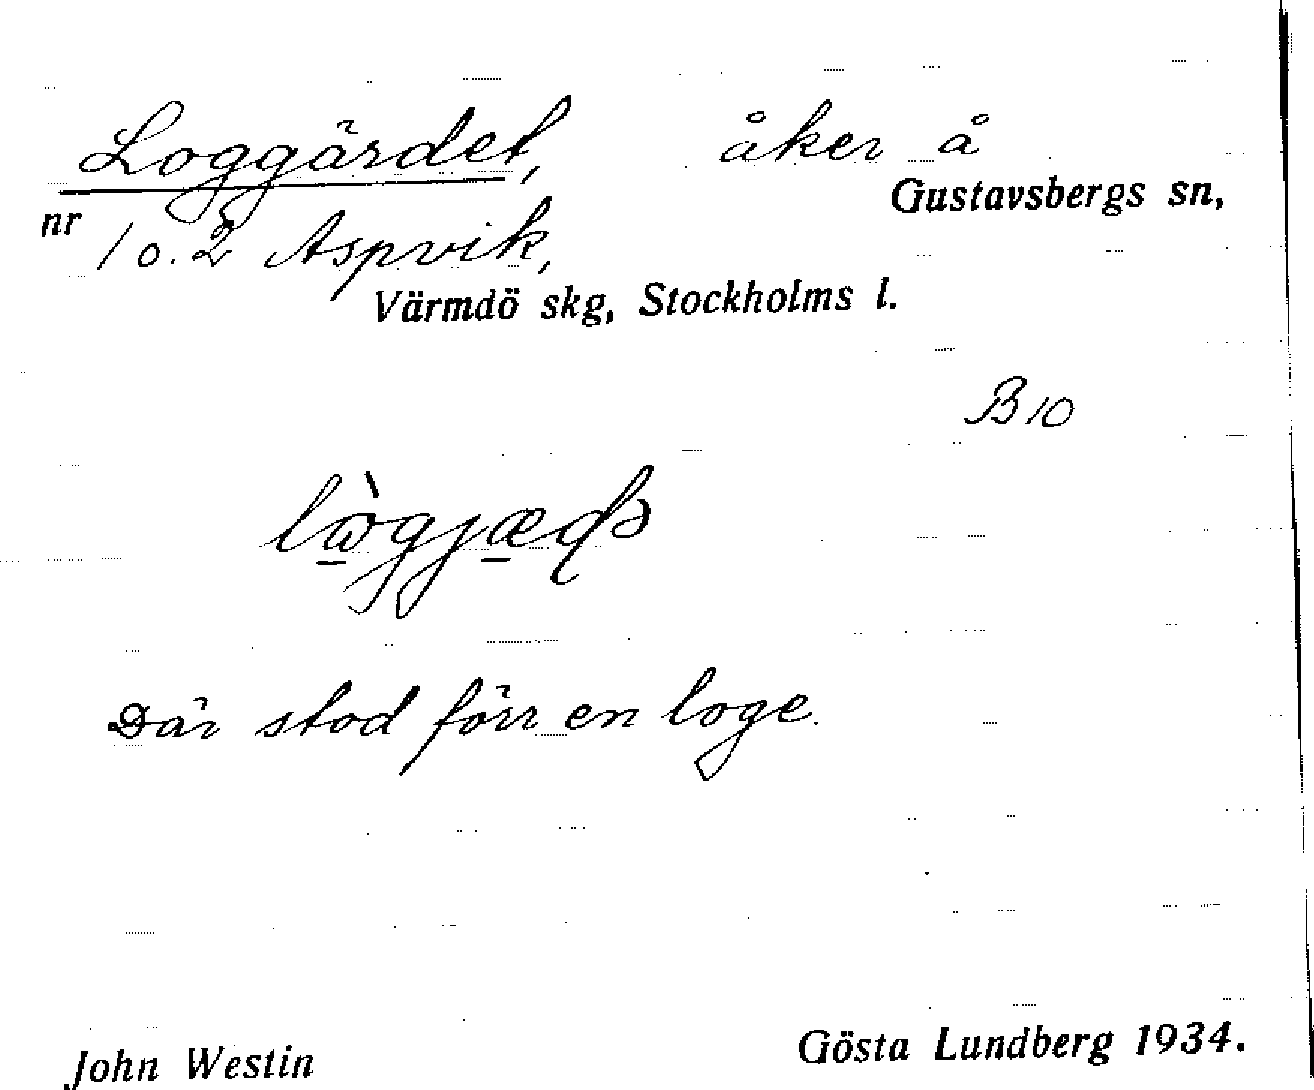 Loggärdet, åker å
Gustavsbergs sn,
nr 1 o. 2 Aspvik,
Värmdö skg, Stockholms l.
B 10
Där stod förr en loge.
John Westin Gösta Lundberg 1934.